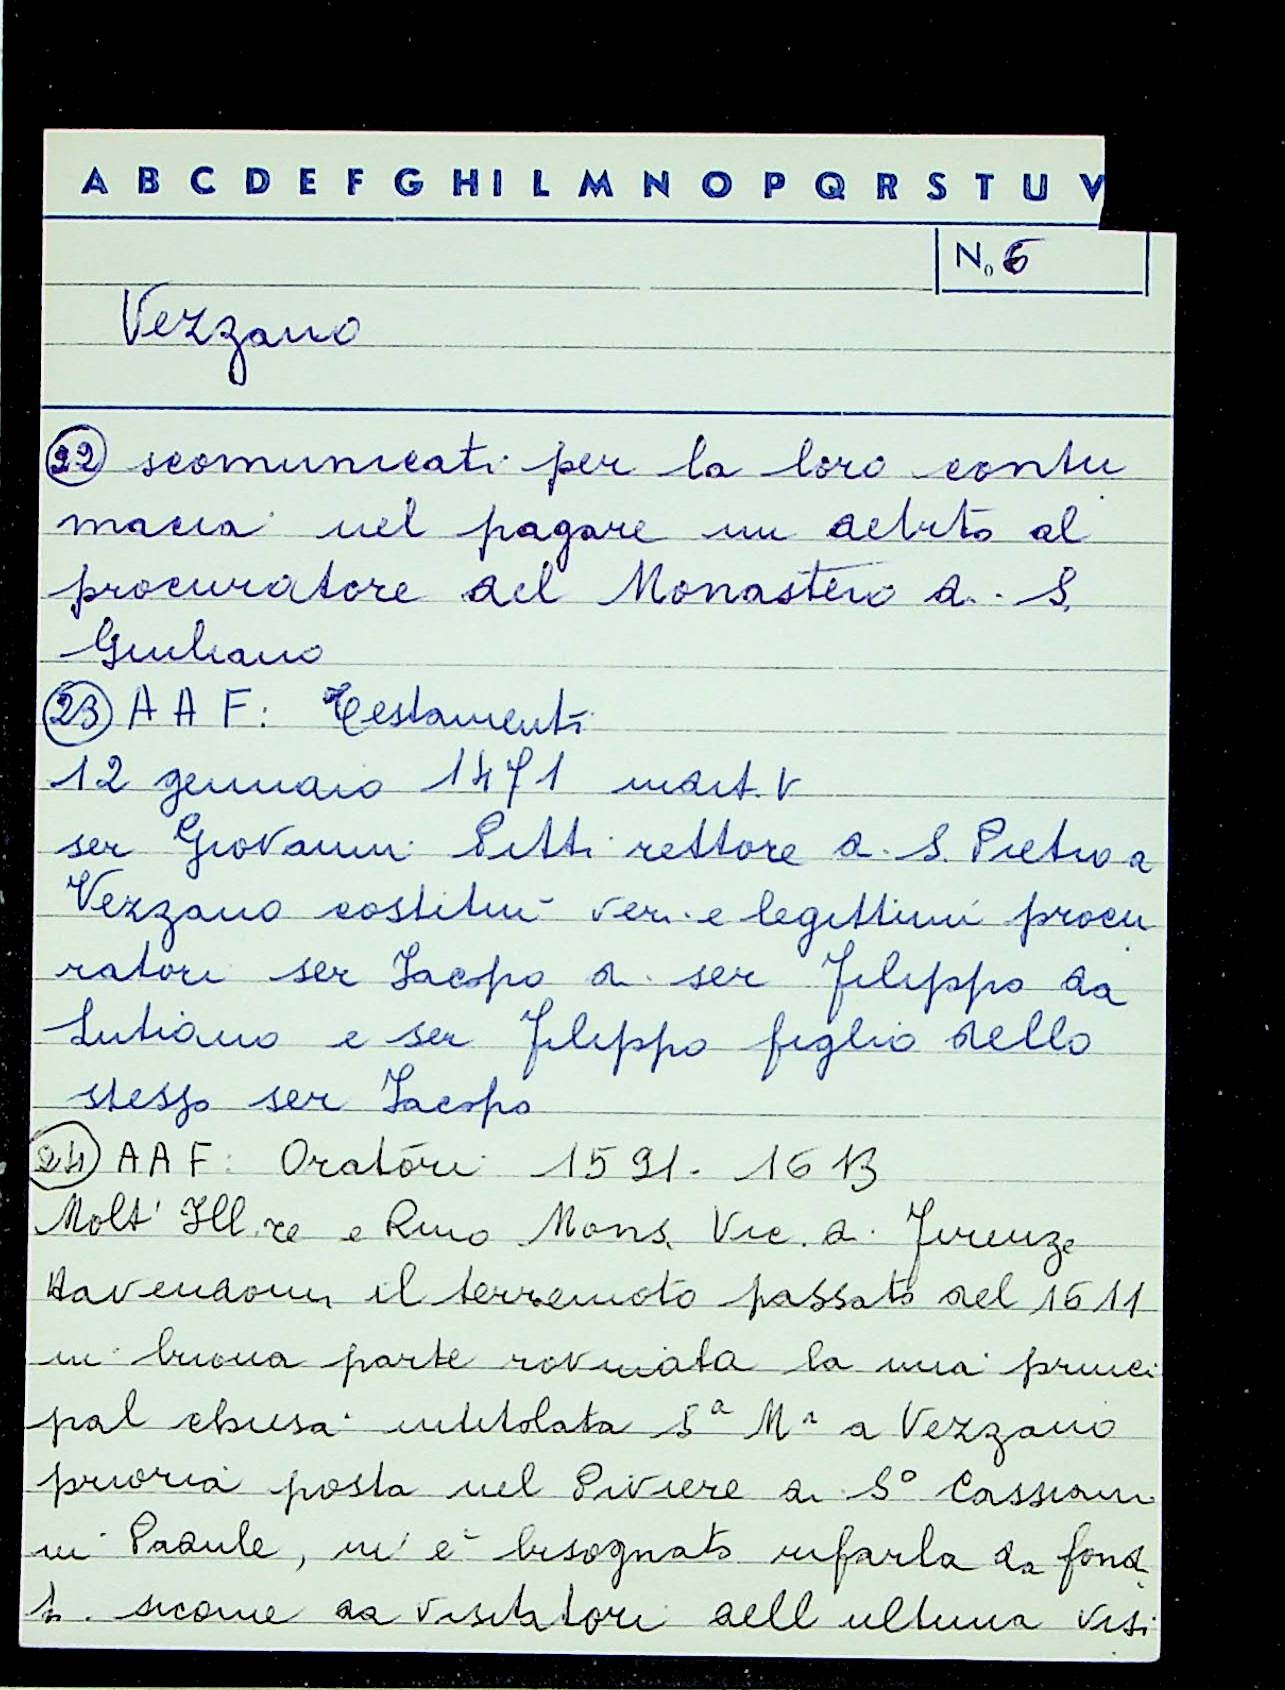 A B C D E F G H I L M N O P Q R S T U V
No 6
Vezzano
22 scomunicati per la loro contu
macia nel pagare un debito al
procuratore del Monastero di S.
Giuliano
23 A A F: Testamenti
12 gennaio 1471 indit. V
ser Giovanni Pitti rettore di S. Pietro a
Vezzano costituì veri e legittimi procu
ratori ser Iacopo di ser Filippo da
Lutiano e ser Filippo figlio dello
stesso ser Iacopo
24 A A F: Oratori 1591-1613
Molt' Ill.re e Rmo Mons. Vic. di Firenze
Havendomi il terremoto passato del 1611
in buona parte rovinata la mia princi
pal chiesa intitolata Sa Ma a Vezzano
prioria posta nel Piviere di So Cassiano
in Padule, m'è bisognato rifarla da fond.
ti. sicome da visitatori dell ultima visi